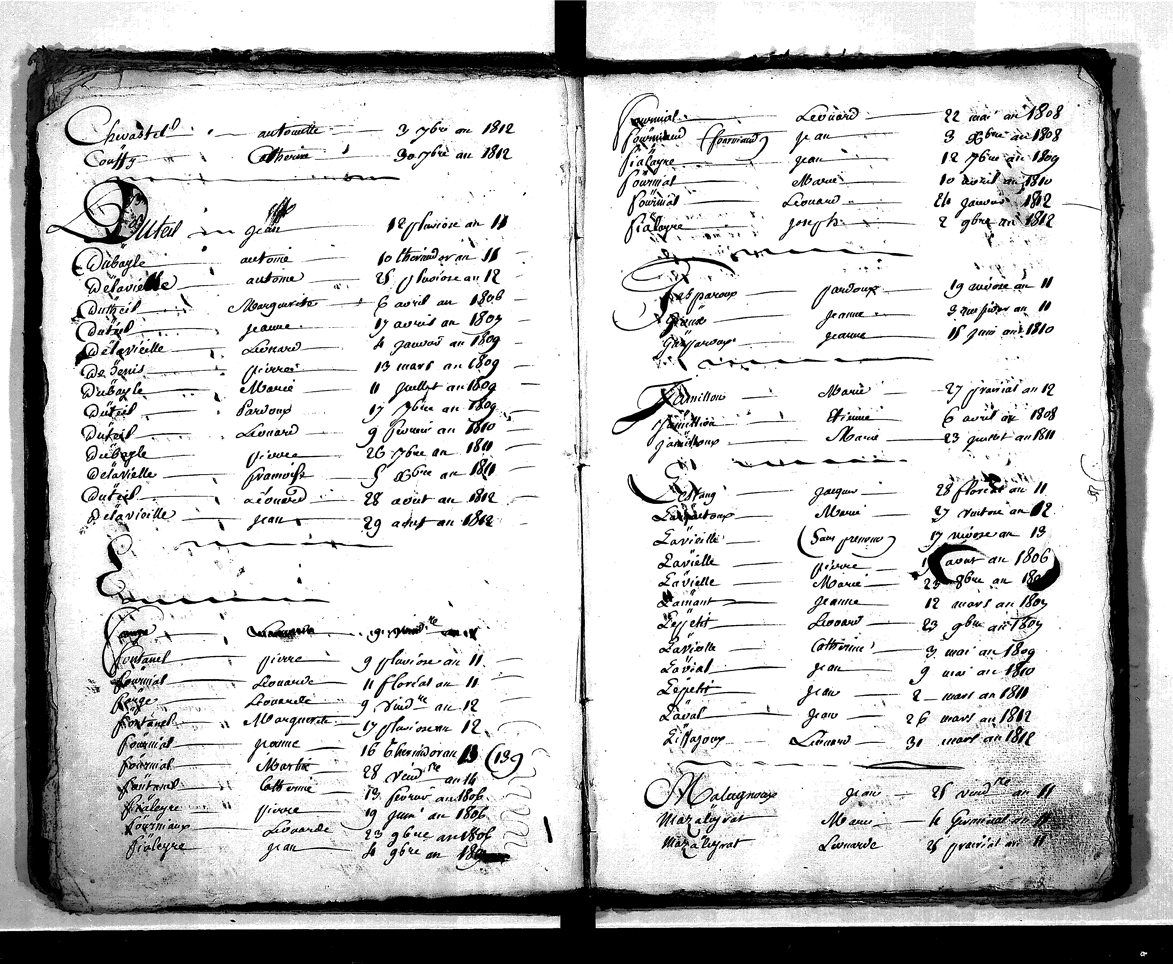 Chwastel antoinette 3 7bre an 1812
Couffy Catherine 30 7bre an 1812
Duteil jean 12 pluviose an 11
Dubayle antoine 10 thermidor an 11
Delavielle antoine 25 pluviose an 12
Duteil Marguerite 6 avril an 1806
Duteil jeanne 17 avril an 1807
Delavielle Léonard 4 janvier an 1809
De denis pierre 13 mars an 1809
Dubayle Marie 11 juillet an 1809
Duteil Pardoux 17 7bre an 1809
Duteil Léonard 9 fevrier an 1810
Dubayle pierre 26 7bre an 1811
Delavielle françoise 5 Xbre an 1811
Duteil Léonard 28 aout an 1812
Delavielle jean 29 aout an 1812
E
9 vendre
fontanel pierre 9 pluviose an 11
fournial Léonarde 11 floreal an 11
Léonarde 9 vendre an 12
fontanel Marguerite 17 pluviose an 12
fournial jeanne 16 thermidor an 13 (13)
fournial Martial 28 vendre an 14
fontanel Catherine 13 fevrier an 1806
fialeyre pierre 19 juin an 1806
fourniaux Léonarde 23 9bre an 1806
fialeyre jean 4 9bre an
fournial Léonard 22 mai an 1808
fourniaud (fourniaud) jean 3 Xbre an 1808
fialeyre jean 12 7bre an 1809
fournial Marie 10 avril an 1810
fournial Léonard 24 janvier 1812
fialeyre joseph 2 9bre an 1812
Gasparoux pardoux 19 nivose an 11
jeanne an 11
Gasparoux jeanne 15 juin an 1810
Jamilloux Marie 27 prairial an 12
Jamilloux Etienne 6 avril an 1808
Jamilloux Marie 23 juillet an 1811
Lestang jacques 28 floreal an 11
Marie 27 ventose an 12
Lavielle (Sans prenom) 17 nivose an 13
Lavielle pierre aout an 1806
Lavielle Marie 23 8bre an
Lamant jeanne 12 mars an 1807
Lepetit Léonard 23 9bre an 1807
Lavielle Catherine 3 mai an 1809
Lavial jean 9 mai an 1810
Lepetit jean 2 mars an 1811
Laval jean 26 mars an 1812
Liffagoux Léonard 31 mars an 1812
Malagnoux jean 25 vendre an 11
Mazaleyrat Marie 4 germinal an 11
Mazaleyrat Léonarde 25 prairial an 11